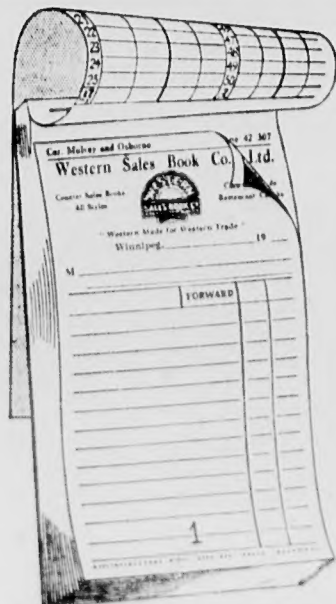 22
23
24
25
Cor. Mulvey and Osborne
42 307
Western Sales Book Co., Ltd.
Counter Sales Books
All Styles
Restaurant
WESTERN
SALES BOOK CO
"Western Made for Western Trade"
Winnipeg 19
M
FORWARD
1